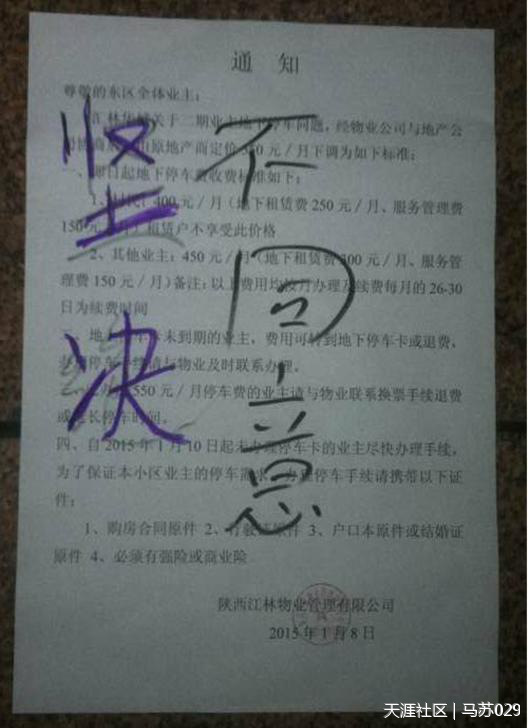 通 知
尊敬的东区全体业主：
关于二期业主地下停车问题，经物业公司与地产公
原地产商定价 元／月下调为如下标准：
即日起地下停车费收费标准如下：
1、 400元/月（地下租赁费250元/月、服务管理费
150 ）租赁户不享受此价格
2、其他业主：450元/月（地下租赁费300元/月、服务管
理费150元/月）备注：以上费用均按月办理及续费每月的26-30
日为续费时间
未到期的业主，费用可转到地下停车卡或退费，
停车 请与物业及时联系办理。
550元/月停车费的业主请与物业联系换票手续退费
或 长停车时间。
四、自2015年1月10日起未办理停车卡的业主尽快办理手续，
为了保证本小区业主的停车需求，办理停车手续请携带以下证
件：
1、购房合同原件 2、行驶证原件 3、户口本原件或结婚证
原件 4、必须有强险或商业险
陕西江林物业管理有限公司
2015年1月8日
坚决
不同意
天涯社区｜马苏029